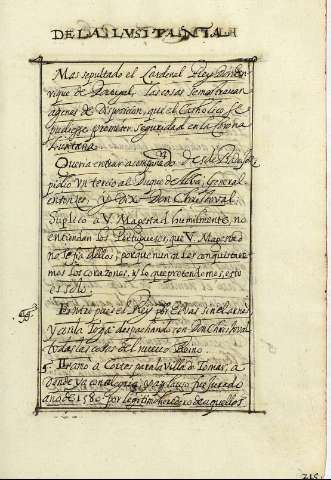 DE LA LUSITANIA
Mas sepultado el Cardenal Rey Don En-
rique de Portugal, las cosas se mostrauan
apenas de disposicion, que el Catholico se
pudiesse prometer seguridad en la Corona
Lusitana.
Queria entrar acompañado desde
pidio vn tercio al Duque de Alba, General
entonces, y Dixo Don Christoual
Suplico a V. Magestad humilmente, no
entiendan los Portugueses, que V. Magestad
no se fia dellos, porque nunca les conquistare-
mos los corazones, y lo que pretendemos, esto
es solo.
Entro pues el Rey por Eluas sin el arnes
y a la Toga despachando con Don Christoual
todas las cosas del nueuo Reino.
llamo a Cortes para la Villa de Tomar, a
donde ya con alegria y aplauso fue jurado
año de 1580 por legitimo heredero de aquellos